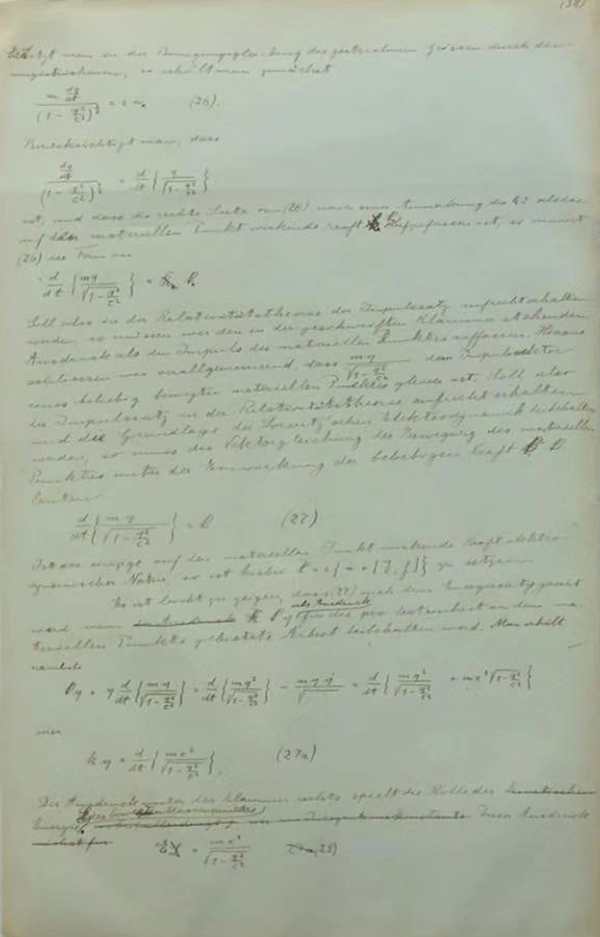 (38)
man in der Bewegungsgleichung die gestrichenen Grössen durch die
ungestrichenen, so erhält man zunächst
m dq/dt / (1 - q²/c²)^(3/2) = (26).
Berücksichtigt man, dass
dq/dt / (1 - q²/c²)^(3/2) = d/dt { q / √(1 - q²/c²) }
ist, und dass die rechte Seite von (26) nach
auf den materiellen Punkt wirkende Kraft aufzufassen ist, so nimmt
(26) die Form an
d/dt { mq / √(1 - q²/c²) } = k
Soll also in der Relativitätstheorie der Impulssatz aufrecht erhalten
werden, so müssen wir den in der geschweiften Klammer stehenden
Ausdruck als den Impuls des materiellen Punktes auffassen. Hieraus
schliessen wir verallgemeinernd, dass mq / √(1 - q²/c²) dem Impulsvektor
eines beliebig bewegten materiellen Punktes gleich ist. Soll aber
der Impulssatz in der Relativitätstheorie aufrecht erhalten
und die Grundlage der Lorentz'schen Elektrodynamik beibehalten
werden, so muss die Vektorgleichung der Bewegung des materiellen
Punktes unter der Einwirkung der beliebigen Kraft k
lauten
d/dt { mq / √(1 - q²/c²) } = k (27)
Ist die einzige auf den materiellen Punkt wirkende Kraft elektro-
dynamischer Natur, so ist hiebei zu setzen.
Es ist leicht zu zeigen, dass (27) auch dem Energiesatz gerecht
wird, wenn als Ausdruck für die pro Zeiteinheit an dem ma-
teriellen Punkte geleistete Arbeit beibehalten wird. Man erhält
nämlich
kq = q d/dt { mq / √(1 - q²/c²) } = d/dt { mq² / √(1 - q²/c²) } - mqq̇ / √ = d/dt { mq² / √(1 - q²/c²) + mc² √(1 - q²/c²) }
oder
kq = d/dt { mc² / √(1 - q²/c²) }. (27a)
Der Ausdruck unter der Klammer rechts spielt die Rolle der
Energie Dieser Ausdruck
= mc² / √(1 - q²/c²) (28)